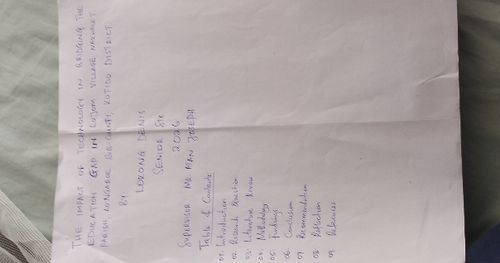 THE IMPACT OF TECHNOLOGY IN BRIDGING THE
EDUCATION GAP IN VILLAGE
PARISH, SUB COUNTY, KOTIDO DISTRICT
BY
LOKONG DENIS
SENIOR SIX
2026
SUPERVISOR MR JOSEPH
Table of Contents
01. Introduction
02 Research question
03 Literature Review
04 Methodology
05 findings
06 Conclusion
07 Recommendation
08 Reflection
09 References